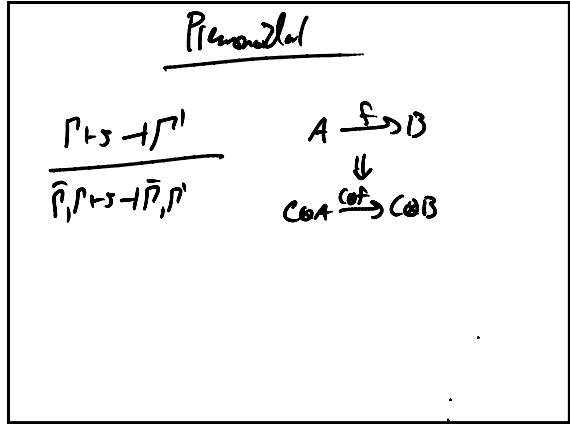 Premonoidal
Γ ⊢ s ⊣ Γ'
Γ̄, Γ ⊢ s ⊣ Γ̄, Γ'
A →f B
⇓
C⊗A →C⊗f C⊗B